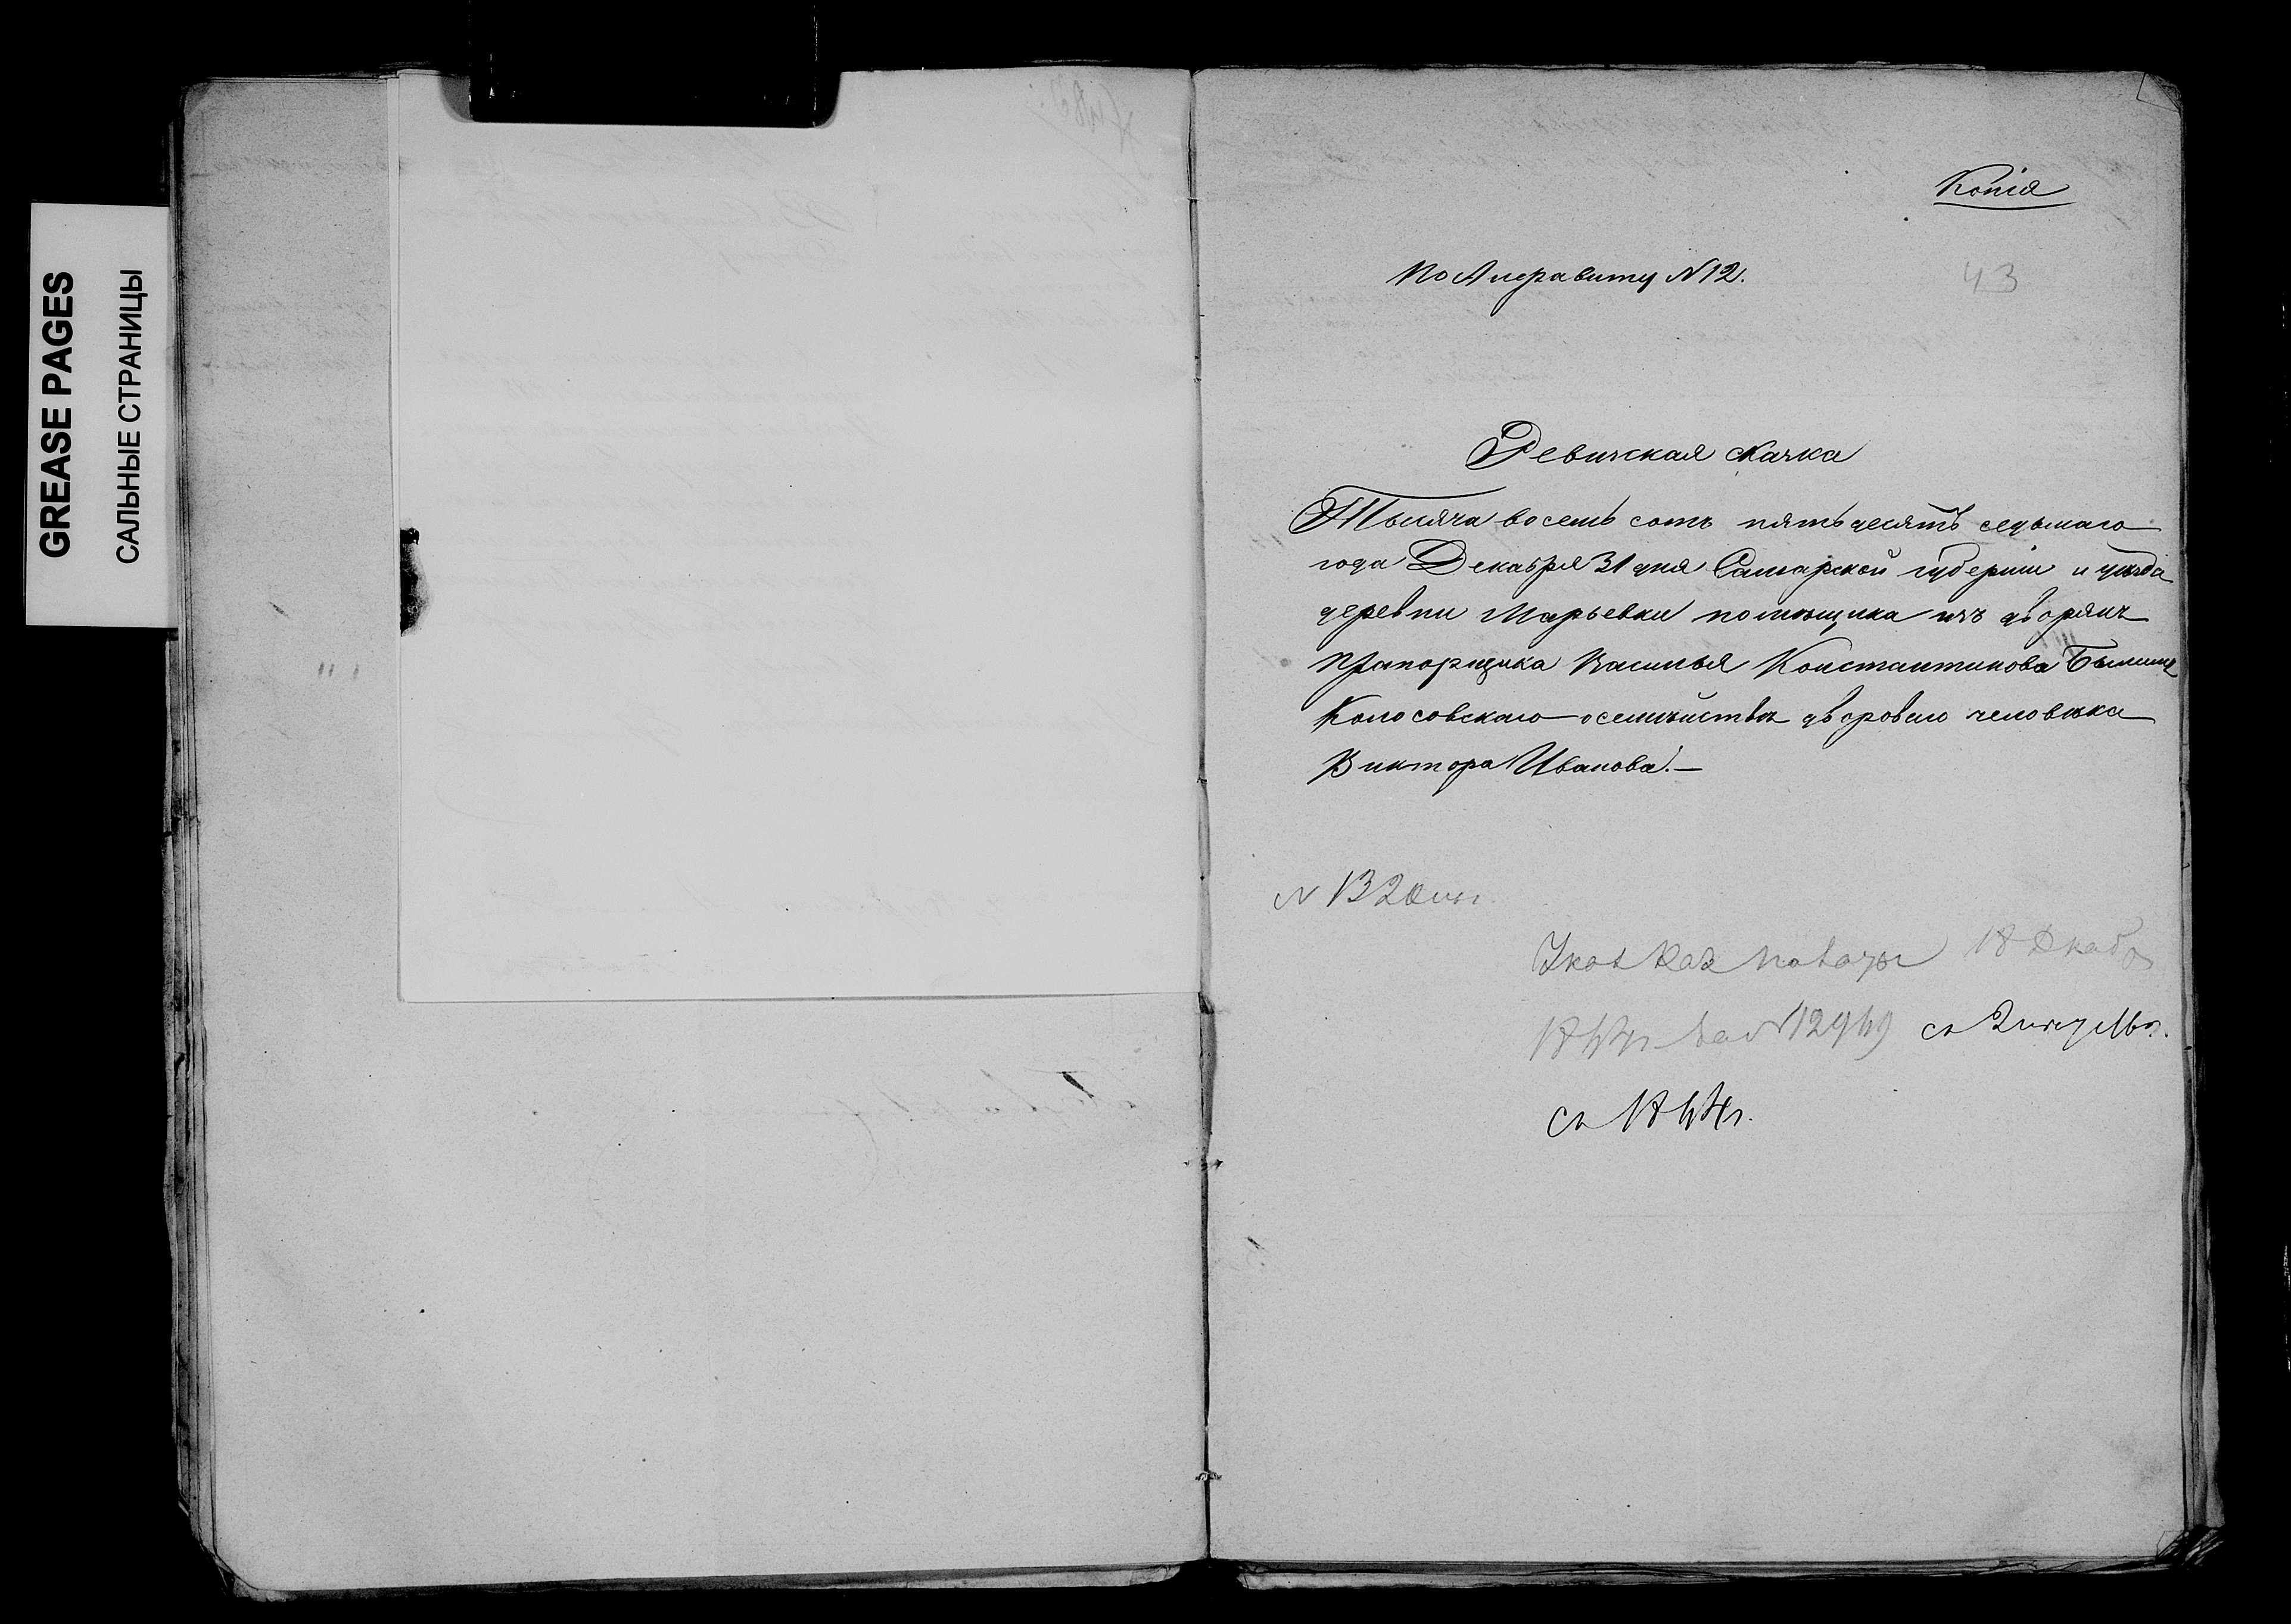 GREASE PAGES
САЛЬНЫЕ СТРАНИЦЫ
Копія
43
По Алфавиту N 12.
Ревижская скачка
Тысяча восемь сотъ пятьдесятъ седьмаго
года Декабря 31 дня Самарской губерніи и уѣзда
деревни Марьевки помѣщика изъ дворянъ
прапорщика Василья Константинова
Колосовскаго о семѣйствѣ двороваго человѣка
Виктора Иванова.—
N 132
Указъ Каз Палаты 18 Декабр
за N 129
съ